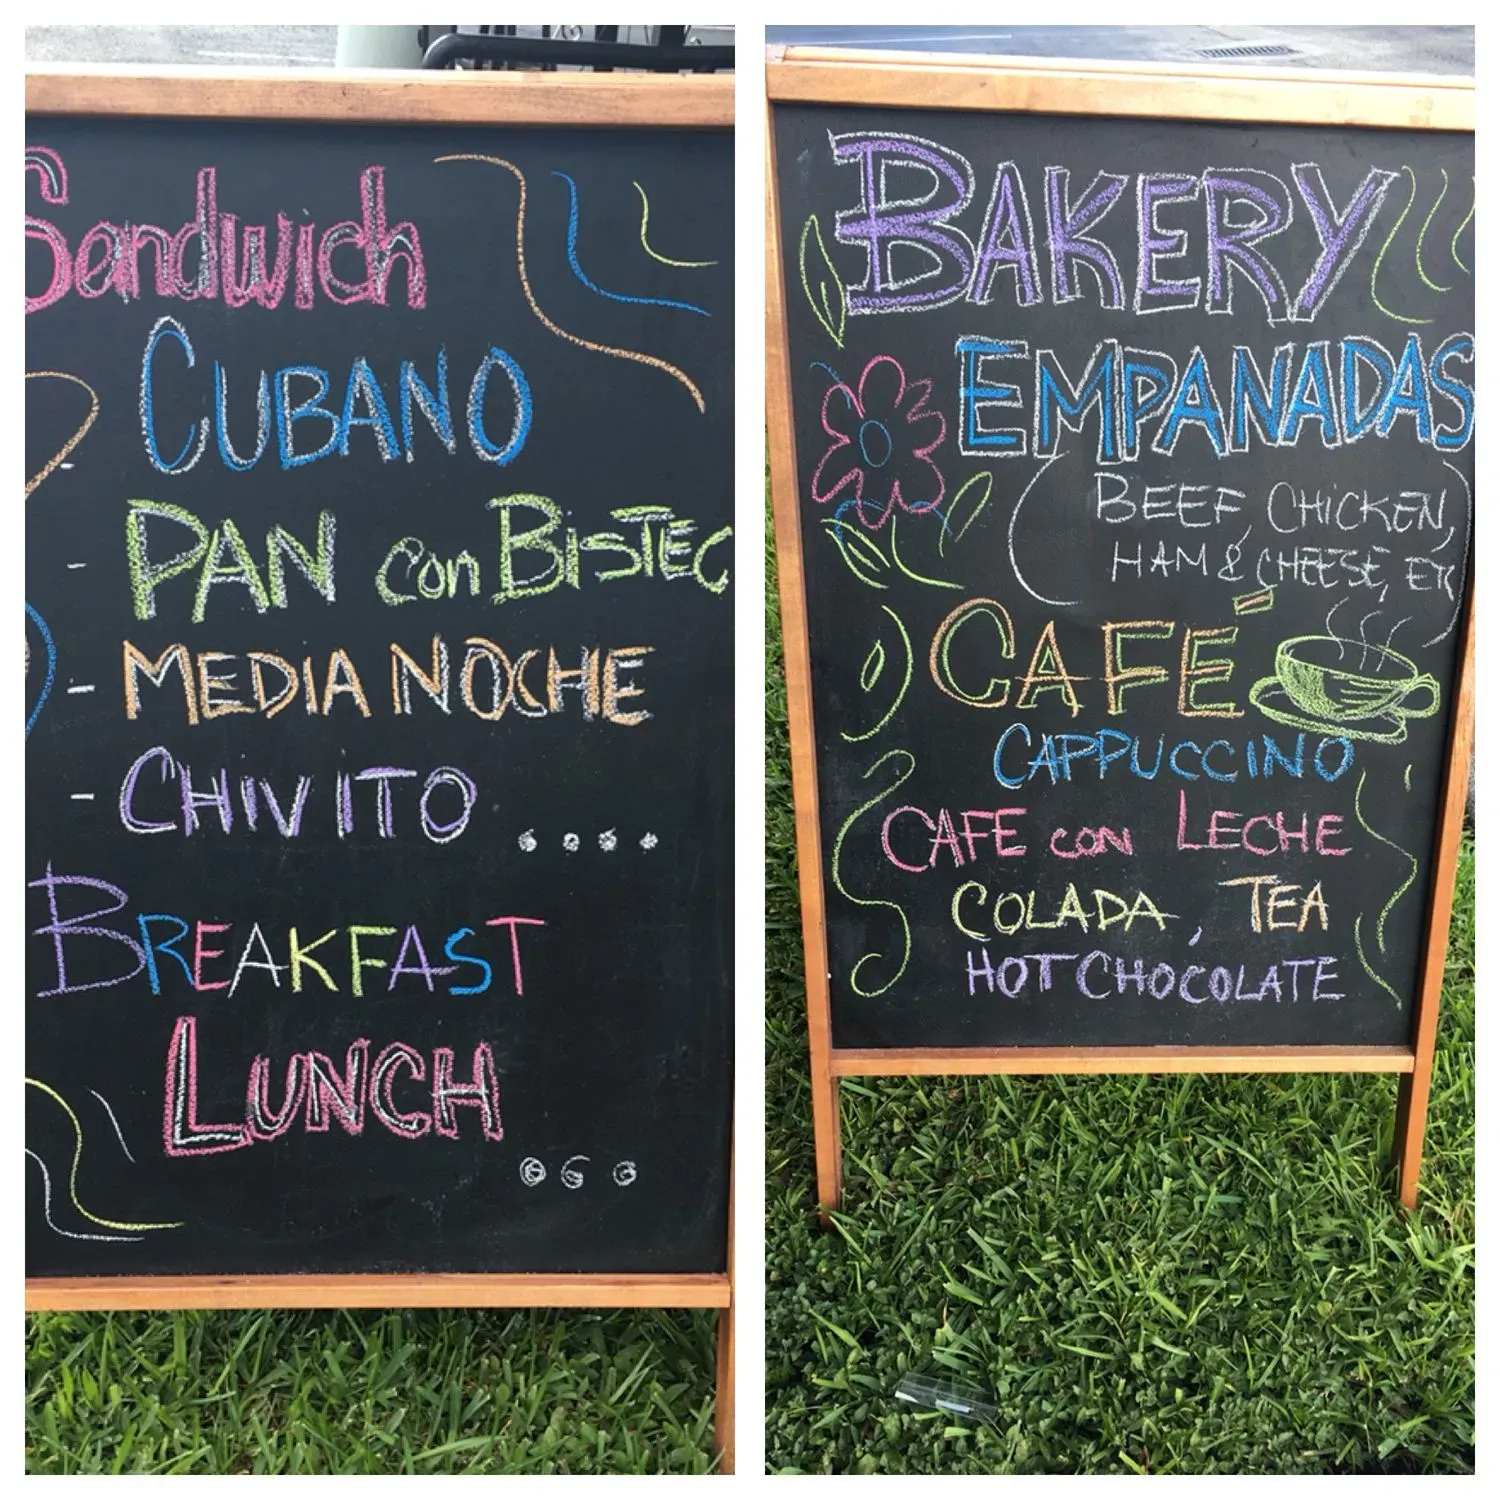 Sandwich
- CUBANO
- PAN con BisTEC
- MEDIA NOCHE
- CHIVITO ....
BREAKFAST
LUNCH
...
BAKERY
EMPANADAS
(BEEF, CHiCKEN,
HAM & CHEESE, ETC)
CAFÉ
CAPPUCCINO
CAFE con LECHE
COLADA, TEA
HOT CHOCOLATE